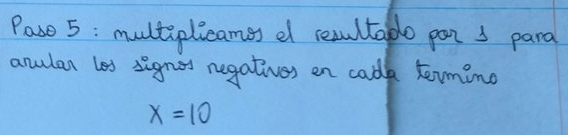 Paso 5 : multiplicamos el resultado por 1 para
anular los signos negativos en cada termino
x = 10